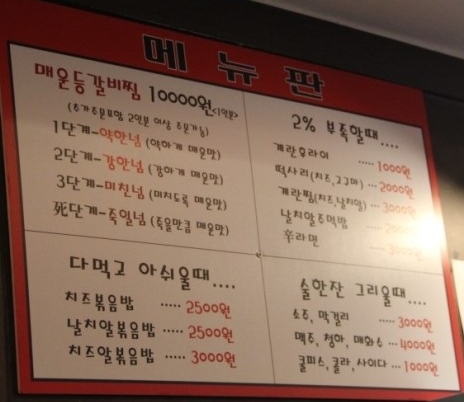 메뉴판
매운등갈비찜 10000원<1인분>
(추가주문포함 2인분 이상 주문가능)
1단계-약한넘 (약하게 매운맛)
2단계-강한넘 (강하게 매운맛)
3단계-미친넘 (미치도록 매운맛)
死단계-죽일넘 (죽을만큼 매운맛)
2% 부족할때....
계란후라이 ..... 1000원
떡사리(치즈,고구마) ... 2000원
계란찜(치즈,날치알) ... 3000원
날치알주먹밥
辛라면
다먹고 아쉬울때....
치즈볶음밥 ..... 2500원
날치알볶음밥 ..... 2500원
치즈알볶음밥 ..... 3000원
술한잔 그리울때....
소주, 막걸리 ..... 3000원
맥주, 청하, 매화수 ... 4000원
쿨피스, 콜라, 사이다 ... 1000원